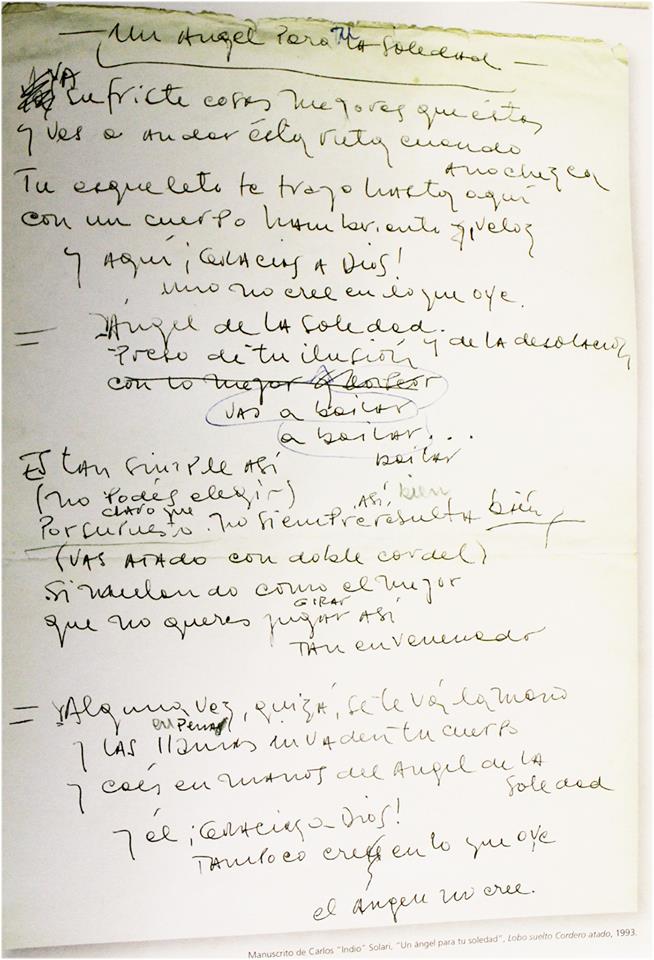 — Un Angel Para Tu la Soledad —
YA
sufriste cosas mejores que éstas
y vas a andar ésta ruta cuando
anochezca
Tu esqueleto te trajo hasta aquí
con un cuerpo hambriento y, veloz
y aquí ¡GRACIAS A DIOS!
uno no cree en lo que oye.
= Ángel de la Soledad.
y de la desolación
Preso de tu ilusión
con lo mejor y lo peor
vas a bailar
a bailar...
bailar
Es tan simple así
(no podés elegir)
claro que así bien
Por supuesto no siempre resulta bién
(vas atado con doble cordel)
Simulando como el mejor
girar
que no queres jugar así
tan envenenado
= Alguna vez, quizá, se te vá la mano
en pena
y las llamas invaden tu cuerpo
y caés en manos del Angel de la
Soledad
y él ¡GRACIAS a Dios!
Tampoco cree en lo que oye
el ángel no cree.
Manuscrito de Carlos "Indio" Solari, "Un ángel para tu soledad", Lobo suelto Cordero atado, 1993.